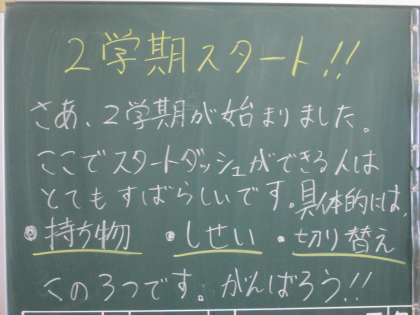 2学期スタート!!
さあ、2学期が始まりました。
ここでスタートダッシュができる人は
とてもすばらしいです。具体的には、
・持ち物 ・しせい ・切り替え
この3つです。がんばろう!!